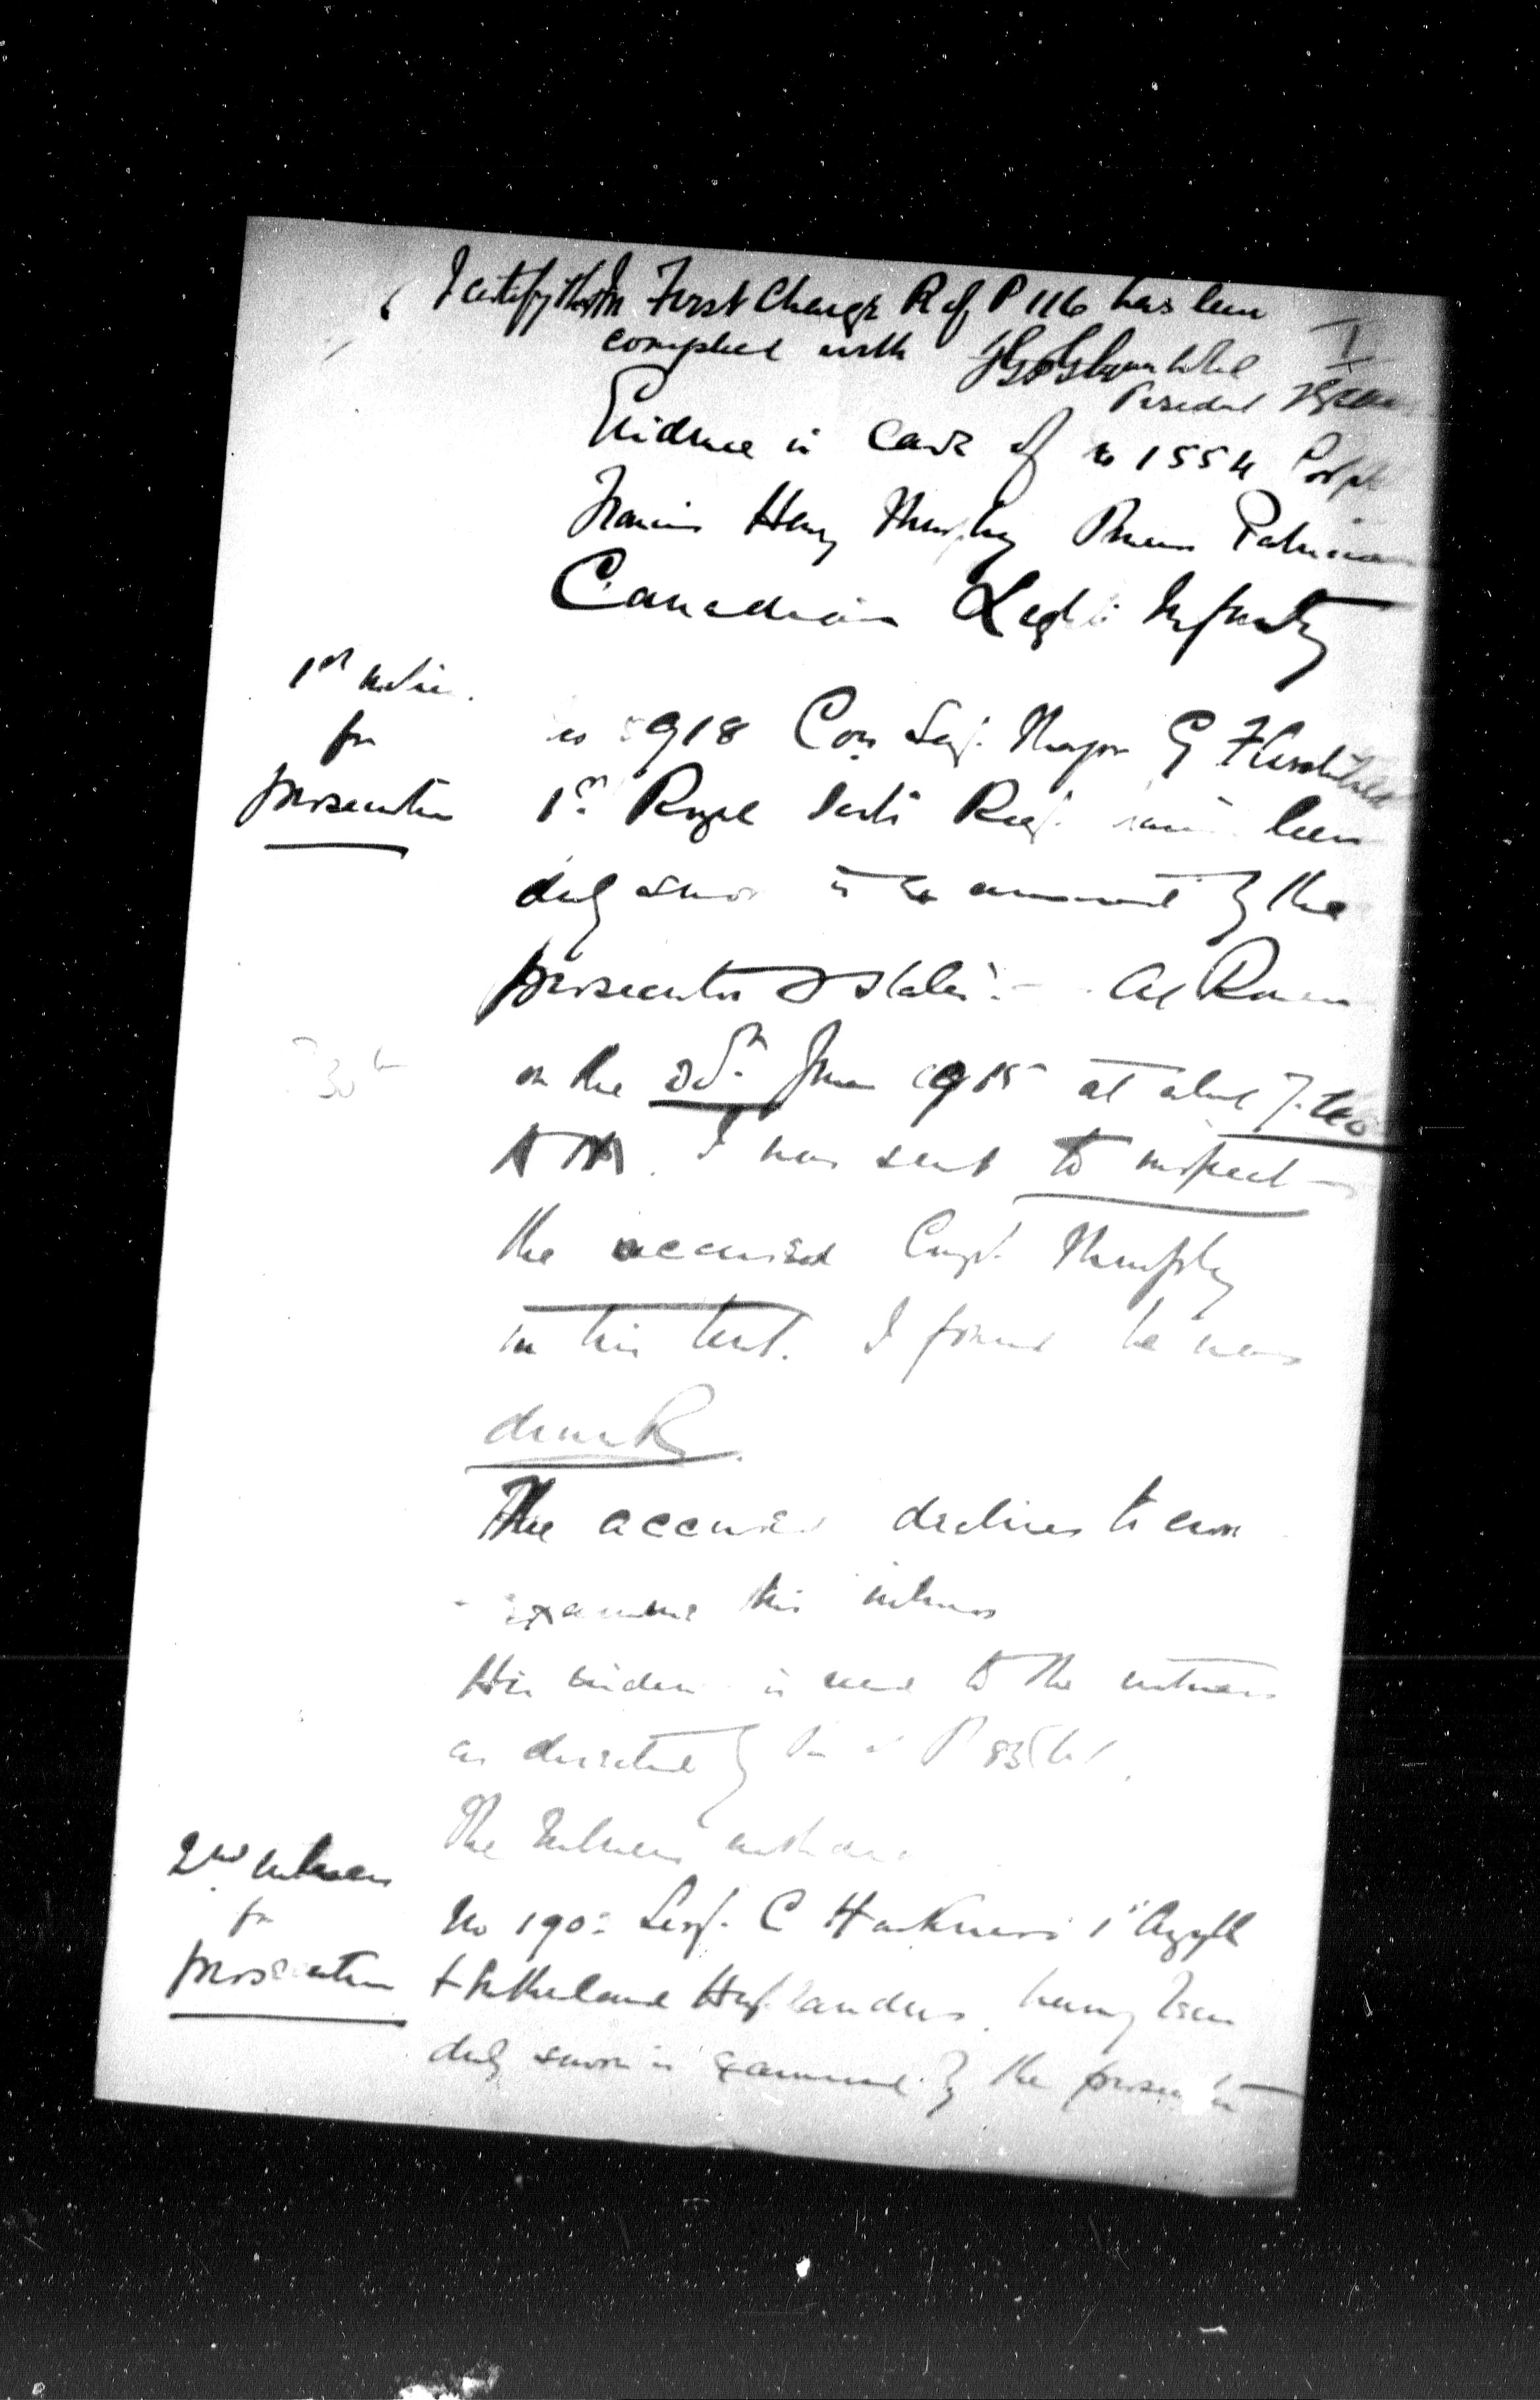 I certify that in First Charge R of P 116 has been
complied with
President
I
Evidence in case of No 1554 Corpl
Francis Henry Murphy Princess Patricias
Canadian Light Infantry
1st witness
for
prosecution
No 918 Coy Serj. Major G
1st Royal Scots Regt. having been
duly sworn is examined by the
prosecutor & states:- At Rouen
on the June 1915 at about 7.
I was sent to inspect
the accused Corpl. Murphy
in his tent. I found he was
drunk.
The accused declines to cross
- examine this witness
His evidence is read to the witness
as directed by R of P 83(b).
The witness withdraws
2nd witness
for
prosecution
No 190 Serj. C Harkness 1st Argyll
& Sutherland Highlanders, having been
duly sworn is examined by the prosecutor